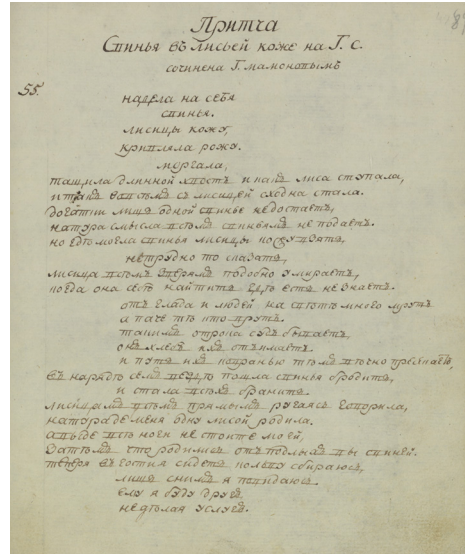 Притча
Свинья въ лисьей коже на Г. С.
сочинена Г. мамоновымъ
55.
надела на себя
свинья.
лисицы кожу,
кривляла рожу.
моргала,
тащила длинной хвостъ и какъ лиса ступала,
и такъ во всѣмъ съ лисицей сходна стала.
догатки лишъ одной свинье недостаетъ,
натура смысла всѣмъ свиньямъ не подаетъ.
но гдѣ могла свинья лисицы кожу взять,
нетрудно то сказать,
лисица всѣмъ зверямъ подобно умираетъ,
когда она себѣ найтить гдѣ есть не знаетъ.
отъ глада и людей на свѣтѣ много мрутъ
а паче тѣ кто врутъ.
такимъ отрокъ судъ бываетъ,
онъ хлебъ ихъ отымаетъ.
и путь ихъ
въ наряде семъ пошла свинья бродить,
и стала всѣхъ бранить.
лисицамъ всѣмъ прямымъ ругаясь говорила,
натура де меня одну лисой родила.
а вы де всѣ ноги не стоите моей,
затѣмъ что родились отъ подлыхъ вы свиней.
теперя въ гости сидеть
лишъ съ нимъ я повидаюсь.
ему я буду другъ
не дѣлая услугъ.